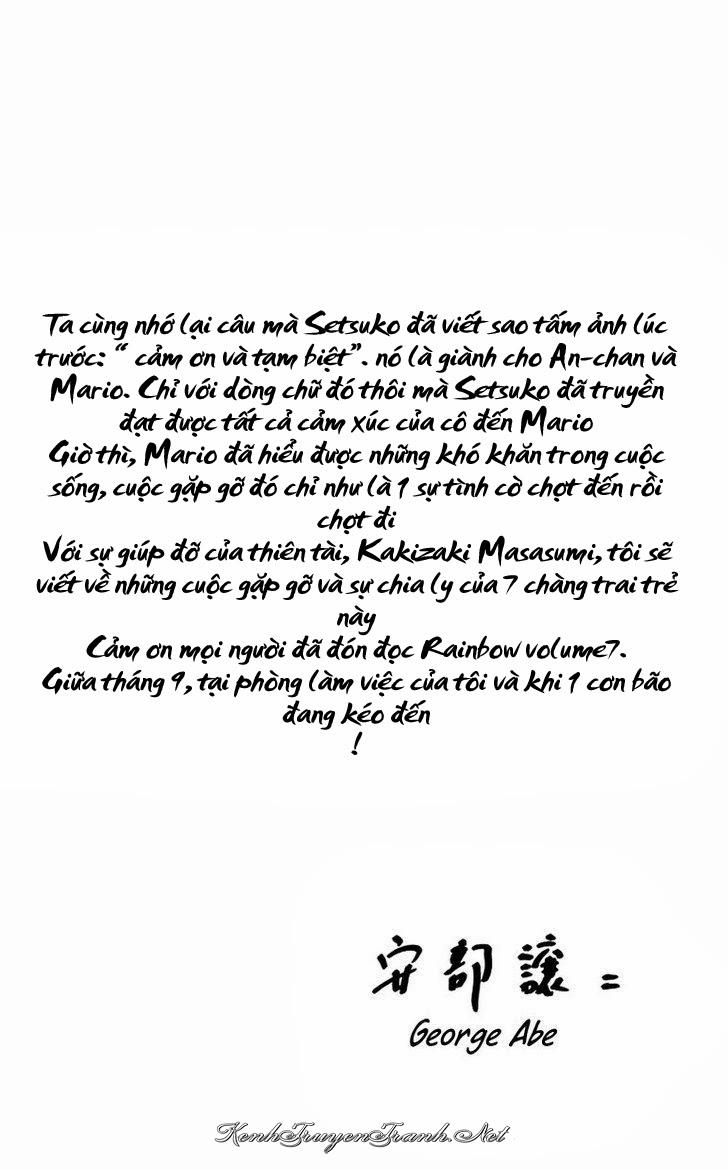 Ta cùng nhớ lại câu mà Setsuko đã viết sao tấm ảnh lúc
trước: “ cảm ơn và tạm biệt”. nó là giành cho An-chan và
Mario. Chỉ với dòng chữ đó thôi mà Setsuko đã truyền
đạt được tất cả cảm xúc của cô đến Mario
Giờ thì, Mario đã hiểu được những khó khăn trong cuộc
sống, cuộc gặp gỡ đó chỉ như là 1 sự tình cờ chợt đến rồi
chợt đi
Với sự giúp đỡ của thiên tài, Kakizaki Masasumi, tôi sẽ
viết về những cuộc gặp gỡ và sự chia ly của 7 chàng trai trẻ
này
Cảm ơn mọi người đã đón đọc Rainbow volume7.
Giữa tháng 9, tại phòng làm việc của tôi và khi 1 cơn bão
đang kéo đến
!
安部譲二
George Abe
KenhTruyenTranh.Net